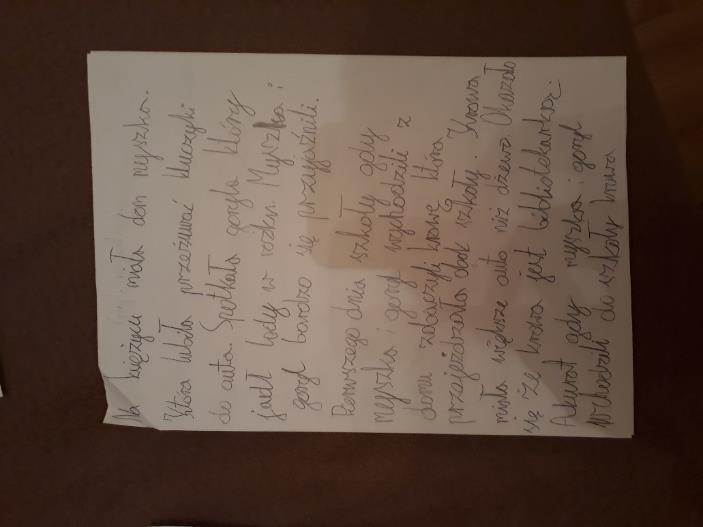 Na księżycu miała dom myszka.
Która lubiła przeżuwać kluczyki
do auta. Spotkała goryla który
jadł lody w rożku. Myszka i
goryl bardzo się przyjaźnili.
Pierwszego dnia szkoły gdy
myszka i goryl wychodzili z
domu zobaczyli krowę która
przejeżdżała obok szkoły. Krowa
miała większe auto niż dżewo. Okazało
się że krowa jest bibliotekarką.
Akurat gdy myszka i goryl
wchodzili do szkoły krowa